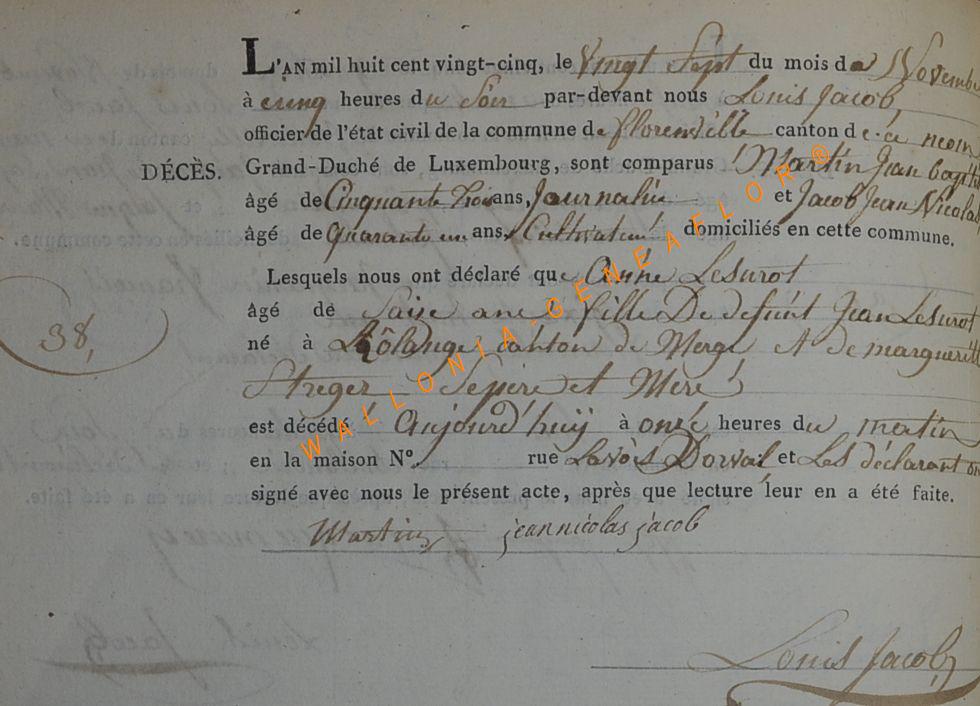 L'AN mil huit cent vingt-cinq, le Vingt Sept du mois de Novembre
à cinq heures du Soir par-devant nous Louis Jacob,
officier de l'état civil de la commune de florenville canton de
DÉCÈS. Grand-Duché de Luxembourg, sont comparus Martin Jean bapti
âgé de Cinquante Trois ans, Journalié et Jacob Jean Nicolas
âgé de quarante un ans, Cultivateur domiciliés en cette commune.
Lesquels nous ont déclaré que Anne Lesurot
âgé de Saise ans fille De defunt Jean Lesurot
38,
né à Rôlange canton de Merge et de marguerit
Streger Sepère et Mere
est décédé Aujourd'huÿ à onze heures du matin
en la maison N°. rue Lavois Dorval et Les déclarant on
signé avec nous le présent acte, après que lecture leur en a été faite.
Martin jeannicolas jacob
Louis Jacob
WALLONIA-GENEAFLOR®